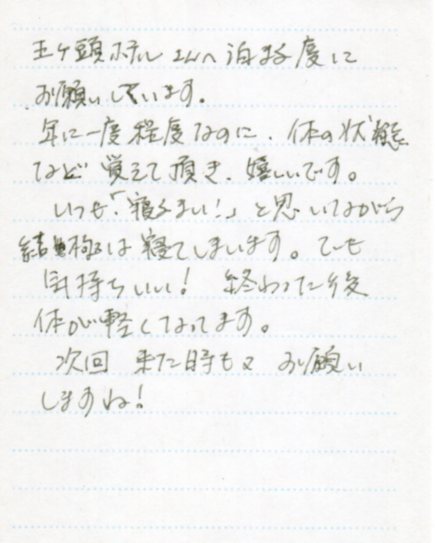 王ヶ頭ホテルさんへ泊まる度に
お願いしています。
年に一度程度なのに、体の状態
など覚えて頂き、嬉しいです。
いつも「寝るまい!」と思いながら
結極は寝てしまいます。でも
気持ちいい! 終わった後
体が軽くなってます。
次回 来た時も又 お願い
しますね!